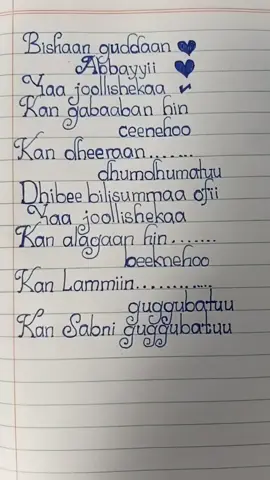 Bishaan guddaan
Abbayyii
Yaa joollishekaa
Kan gabaaban hin
ceenehoo
Kan dheeraan........
dhumdhumatuu
Dhibee bilisummaa ofii
Yaa joollishekaa
Kan alagaan hin........
beeknehoo
Kan Lammiin.............
guggubatuu
Kan Sabni guggubatuu